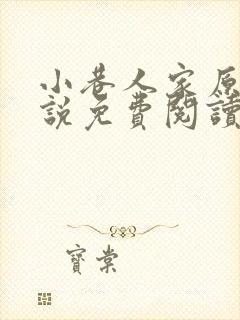 小巷人家原
說免費閱讀
寶棠